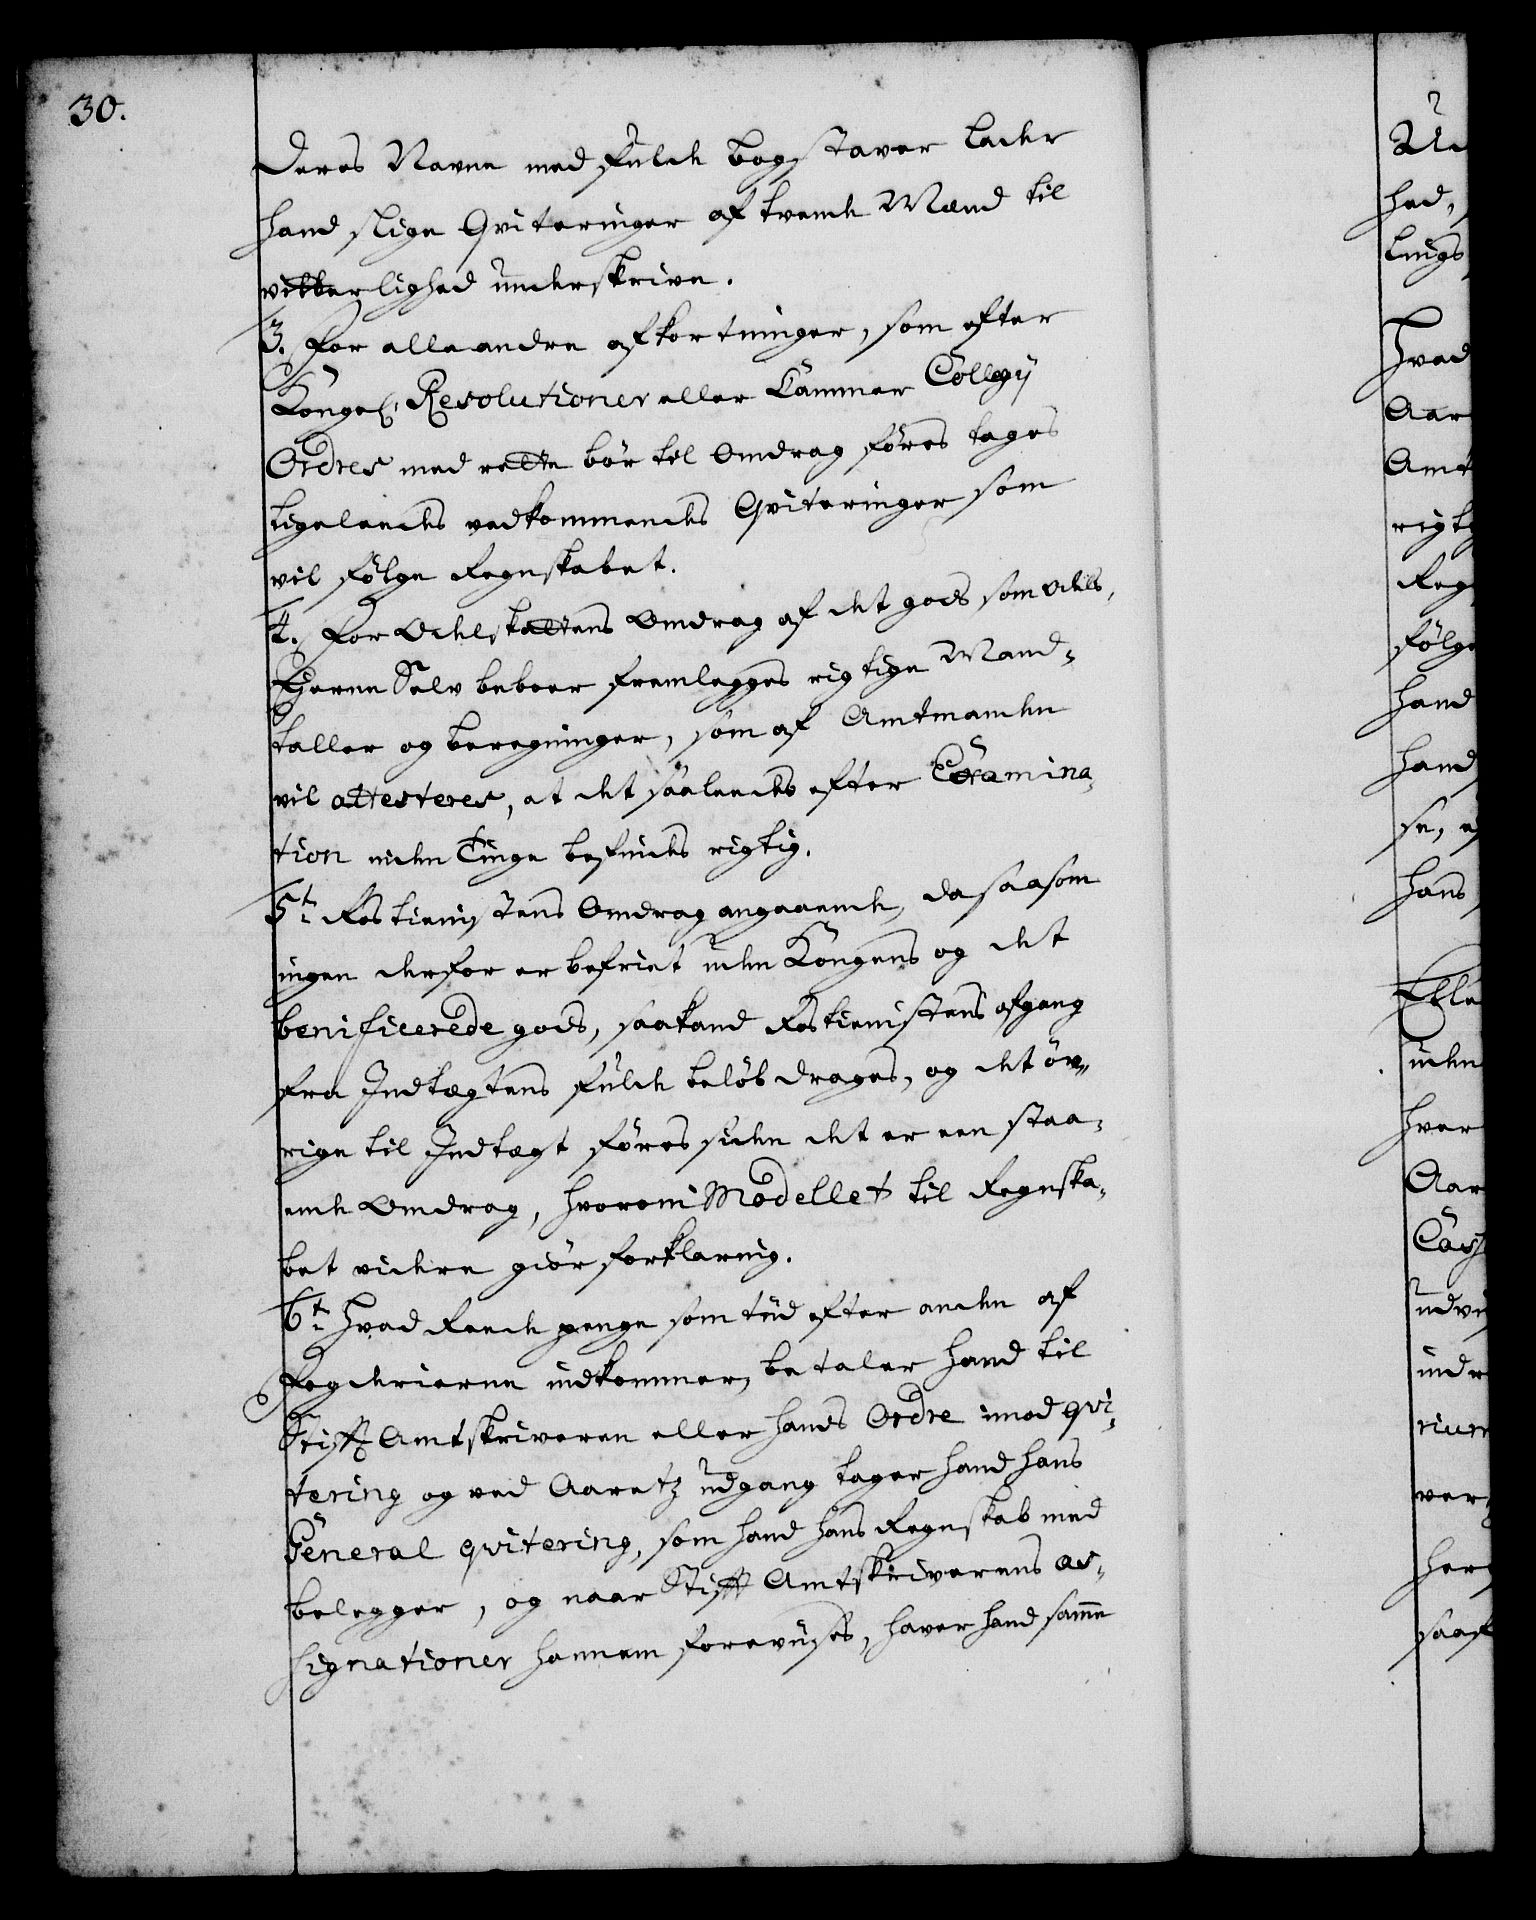 30.
deres Navne med fulde bogstaver lader
hand slige Qviteringer af tvende Mænd til
vitterlighed underskrive.
3. For alle andre afkortninger, som efter
Kongel. Resolutioner eller Cammer Collegij
Ordres med rette bör til Omdrag föres tages
ligeledes vedkommendes Qviteringer som
vil fölge Regnskabet.
4. For Odelskattens Omdrag af det gods som Odels,
Ejerne Selv beboer fremlegges rigtige Mand-
taller og beregninger, som af Amtmanden
vil attesteres, at det saaledes efter Examina-
tion inden Tinge befindes rigtig.
5te Rostienistens Omdrag angaaende, da saasom
ingen derfor er befriet uden Kongens og det
benificerede gods, saa kand Rostienistens afgang
fra Indtægtens fulde belöb drages, og det öv-
rige til Indtægt föres siden det er een staa-
ende Omdrag, hvorom Modellet til Regnska-
bet videre giör forklaring.
6te Hvad Rede penge som tiid efter anden af
Fogderierne indkommer, betaler hand til
Stifft Amtskriveren eller hands Ordre imod qvi-
tering og ved Aaretz udgang tager hand hans
General qvitering, som hand hans Regnskab med
belegger, og naar Stifft Amtskriverens as-
signationer hannem foreviises, haver hand samme
hed,
lings
Hvad
Aar
Amt
Reg
fölge
hand
hand
hans
uden
hver
Aar